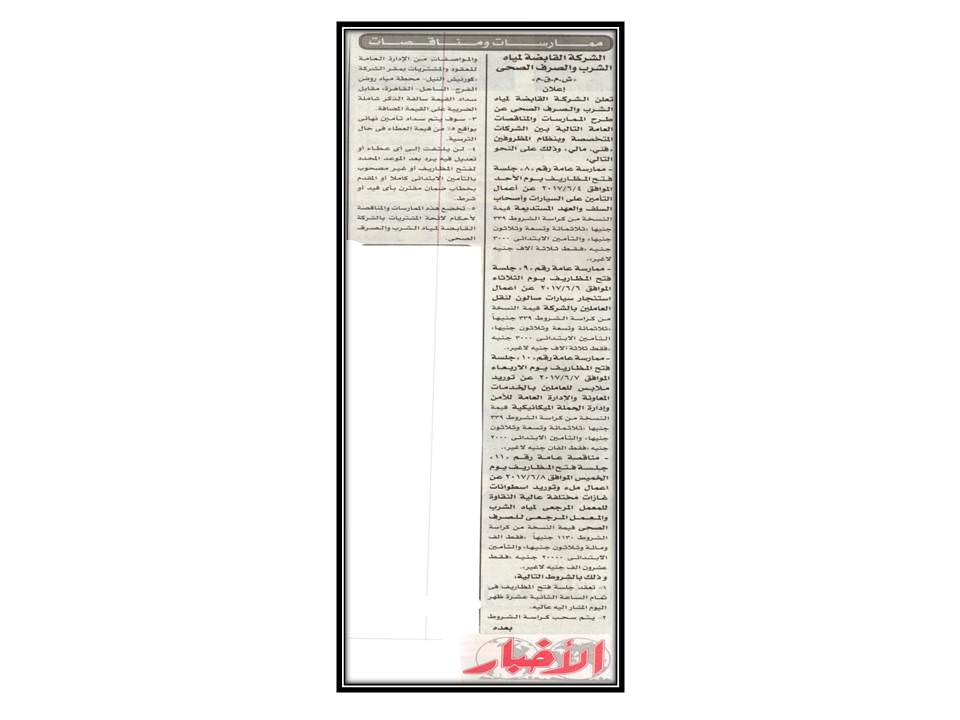 ممارسات ومناقصات
الشركة القابضة لمياه
الشرب والصرف الصحى
«ش.م.ق.م»
إعلان
تعلن الشركة القابضة لمياه
الشرب والصرف الصحى عن
طرح الممارسات والمناقصات
العامة التالية بين الشركات
المتخصصة وبنظام المظروفين
«فنى، مالى» وذلك على النحو
التالى:
- ممارسة عامة رقم «٨» جلسة
فتح المظاريف يوم الأحد
الموافق ٢٠١٧/٦/٤ عن أعمال
التأمين على السيارات وأصحاب
السلف والعهد المستديمة قيمة
النسخة من كراسة الشروط ٣٣٩
جنيها «ثلاثمائة وتسعة وثلاثون
جنيها» والتأمين الابتدائى ٣٠٠٠
جنيه «فقط ثلاثة آلاف جنيه
لاغير».
- ممارسة عامة رقم «٩» جلسة
فتح المظاريف يوم الثلاثاء
الموافق ٢٠١٧/٦/٦ عن أعمال
استئجار سيارات صالون لنقل
العاملين بالشركة قيمة النسخة
من كراسة الشروط ٣٣٩ جنيهاً
«ثلاثمائة وتسعة وثلاثون جنيها»
التأمين الابتدائى ٣٠٠٠ جنيه
«فقط ثلاثة آلاف جنيه لاغير».
- ممارسة عامة رقم «١٠» جلسة
فتح المظاريف يوم الاربعاء
الموافق ٢٠١٧/٦/٧ عن توريد
ملابس للعاملين بالخدمات
المعاونة والإدارة العامة للأمن
وإدارة الحملة الميكانيكية قيمة
النسخة من كراسة الشروط ٣٣٩
جنيها «ثلاثمائة وتسعة وثلاثون
جنيها» والتأمين الابتدائى ٢٠٠٠
جنيه «فقط الفان جنيه لاغير».
- مناقصة عامة رقم «١١»
جلسة فتح المظاريف يوم
الخميس الموافق ٢٠١٧/٦/٨ عن
اعمال ملء وتوريد اسطوانات
غازات مختلفة عالية النقاوة
للمعمل المرجعى لمياه الشرب
والمعمل المرجعى للصرف
الصحى قيمة النسخة من كراسة
الشروط ١١٣٠ جنيهاً «فقط الف
ومائة وثلاثون جنيها» والتأمين
الابتدائى ٢٠٠٠٠ جنيه «فقط
عشرون الف جنيه لاغير».
وذلك بالشروط التالية:
١- تعقد جلسة فتح المظاريف فى
تمام الساعة الثانية عشرة ظهر
اليوم المشار اليه عاليه.
٢- يتم سحب كراسة الشروط
بعده
والمواصفات من الإدارة العامة
للعقود والمشتريات بمقر الشركة
«كورنيش النيل- محطة مياه روض
الفرج- الساحل- القاهرة» مقابل
سداد القيمة سالفة الذكر شاملة
الضريبة على القيمة المضافة.
٣- سوف يتم سداد تأمين نهائى
بواقع ٥٪ من قيمة العطاء فى حال
الترسية.
٤- لن يلتفت إلى أى عطاء أو
تعديل فيه يرد بعد الموعد المحدد
لفتح المظاريف أو غير مصحوب
بالتأمين الابتدائى كاملا أو المقدم
بخطاب ضمان مقترن بأى قيد أو
شرط.
٥- تخضع هذه الممارسات والمناقصة
لأحكام لائحة المشتريات بالشركة
القابضة لمياه الشرب والصرف
الصحى.
الأخبار